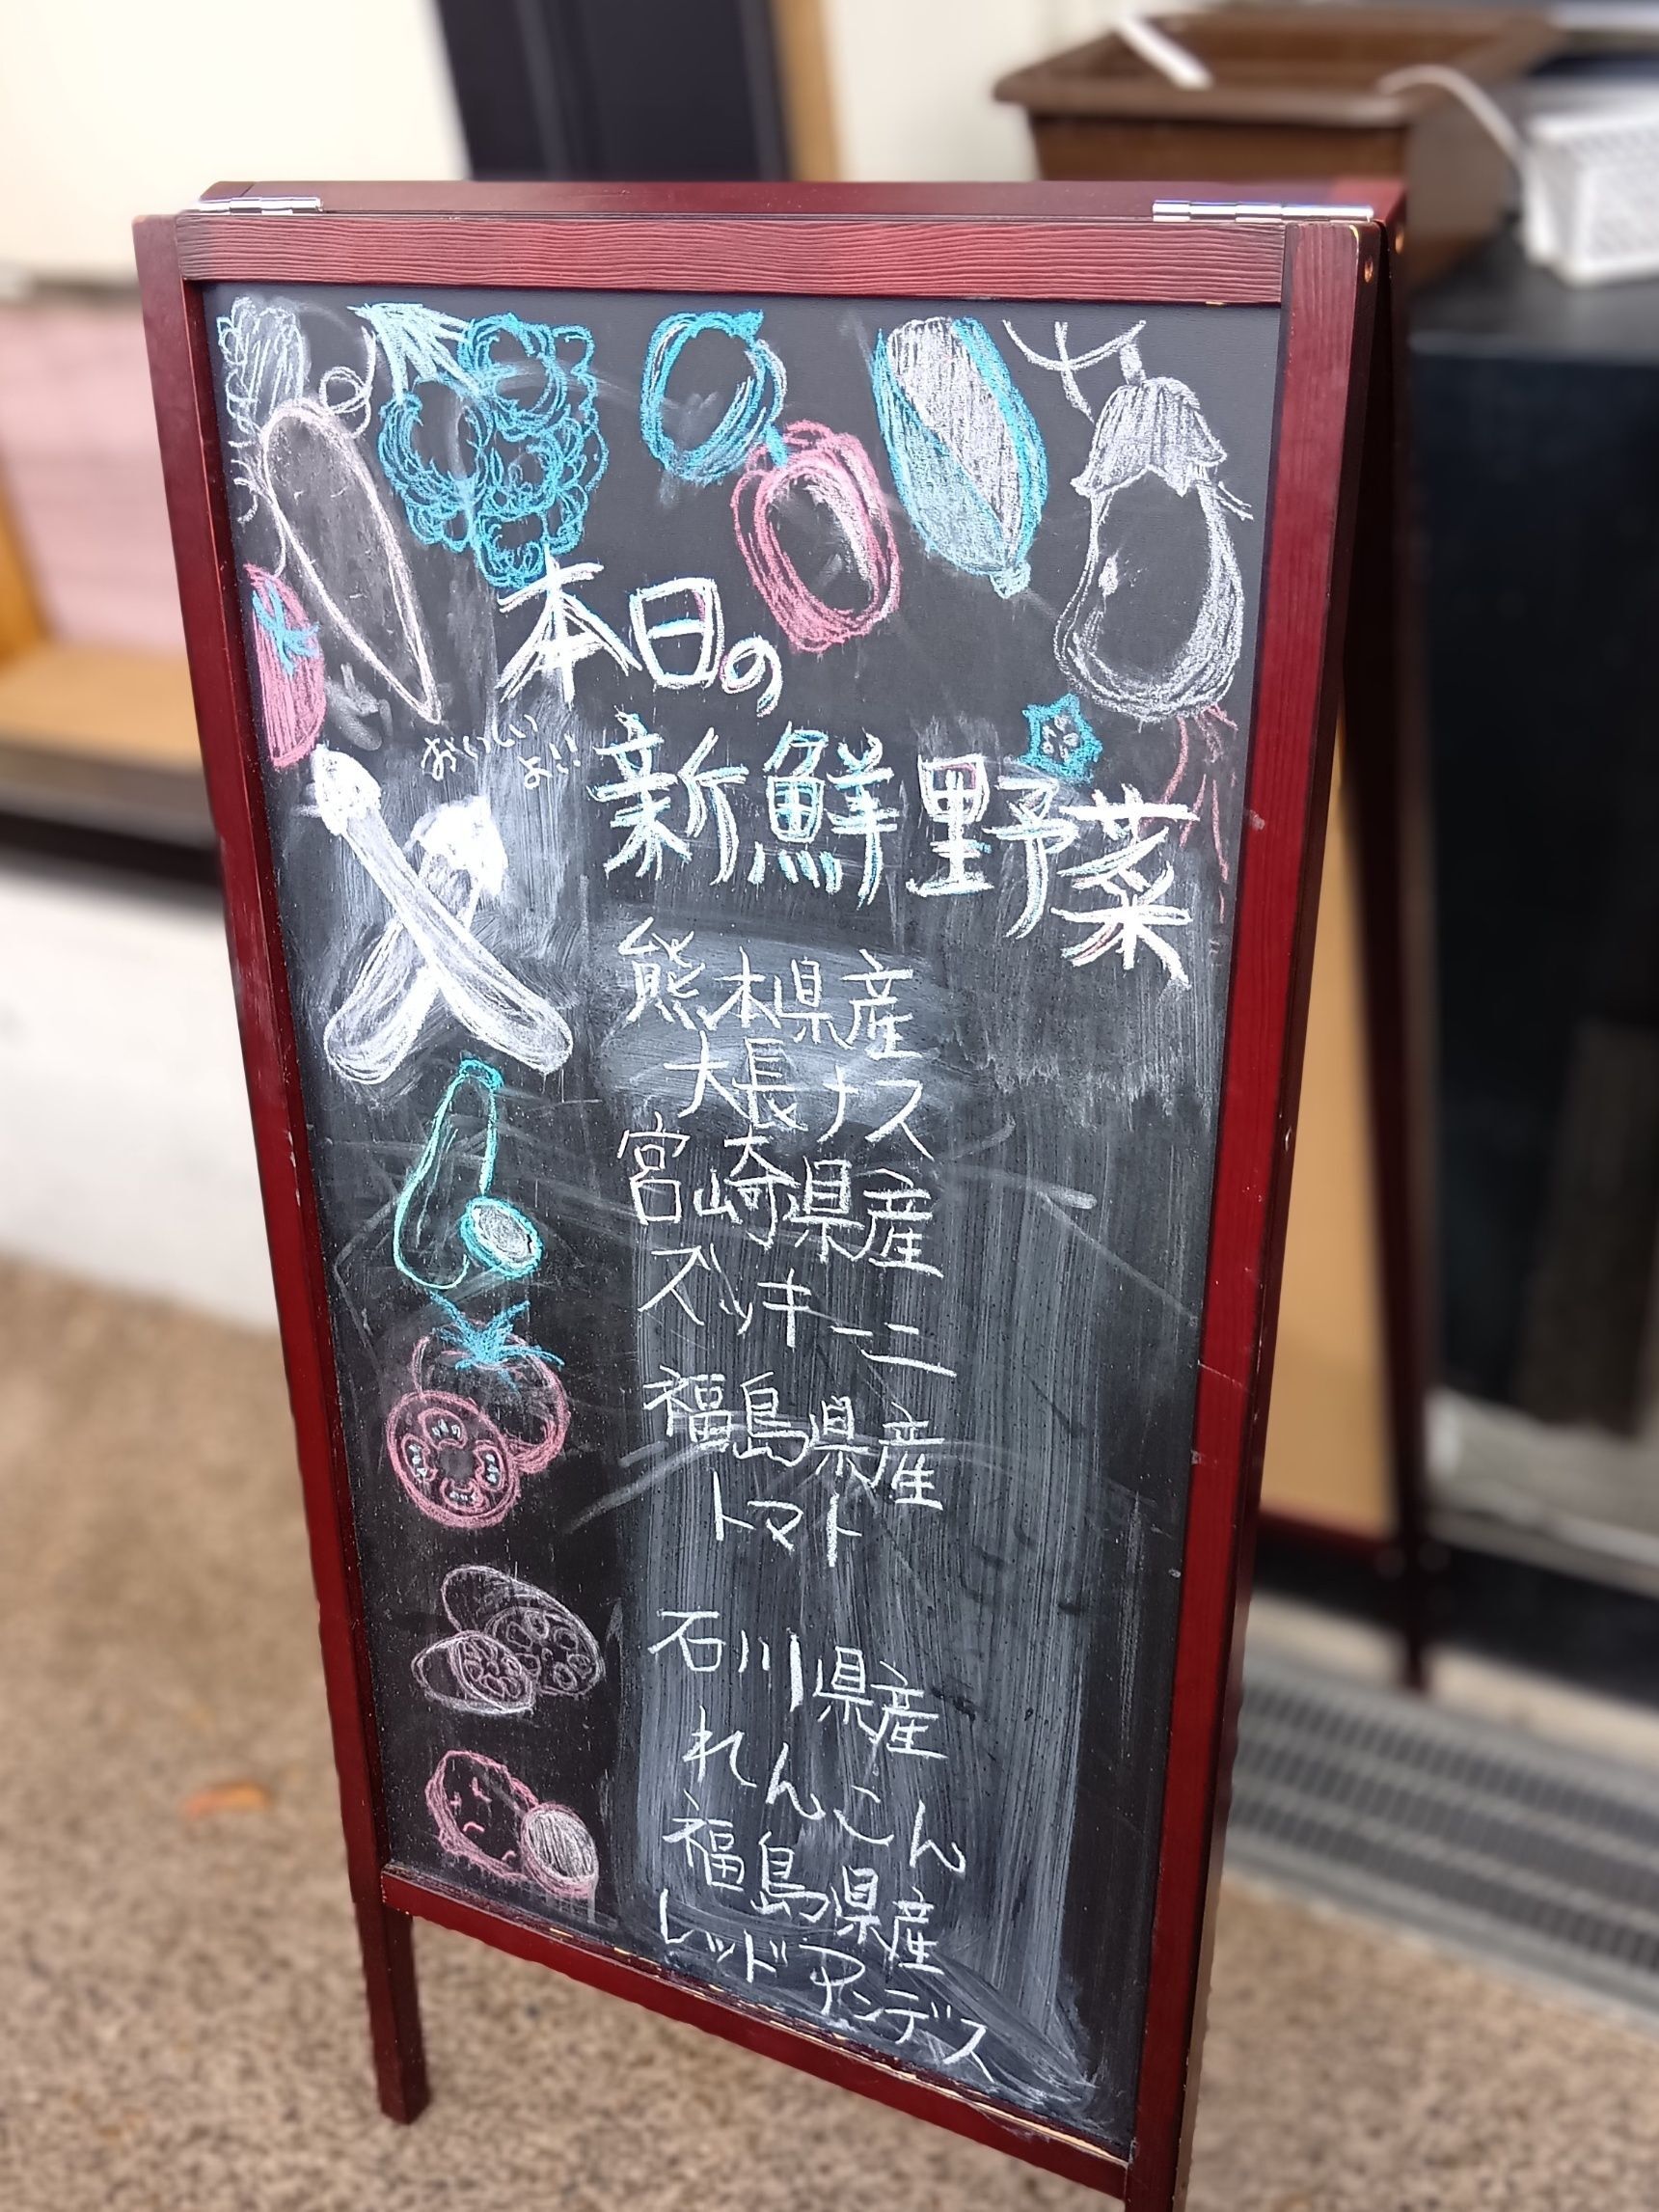 本日の
おいしい
よ!!
新鮮野菜
熊本県産
大長ナス
宮崎県産
ズッキーニ
福島県産
トマト
石川県産
れんこん
福島県産
レッドアンデス